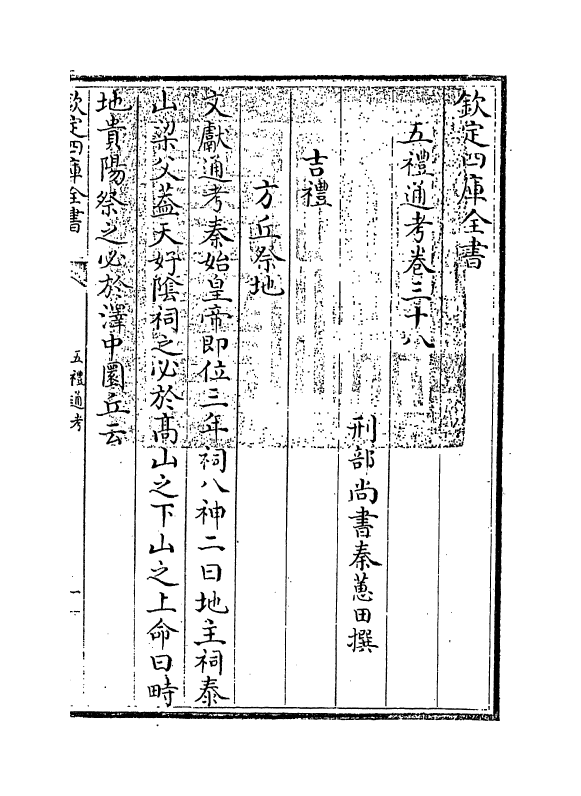 欽定四庫全書
五禮通考卷三十八
刑部尚書秦蕙田撰
吉禮
方丘祭地
文獻通考秦始皇帝即位三年祠八神二曰地主祠泰
山梁父蓋天好陰祠之必於髙山之下山之上命曰畤
地貴陽祭之必於澤中圜丘云
欽定四庫全書
五禮通考
一